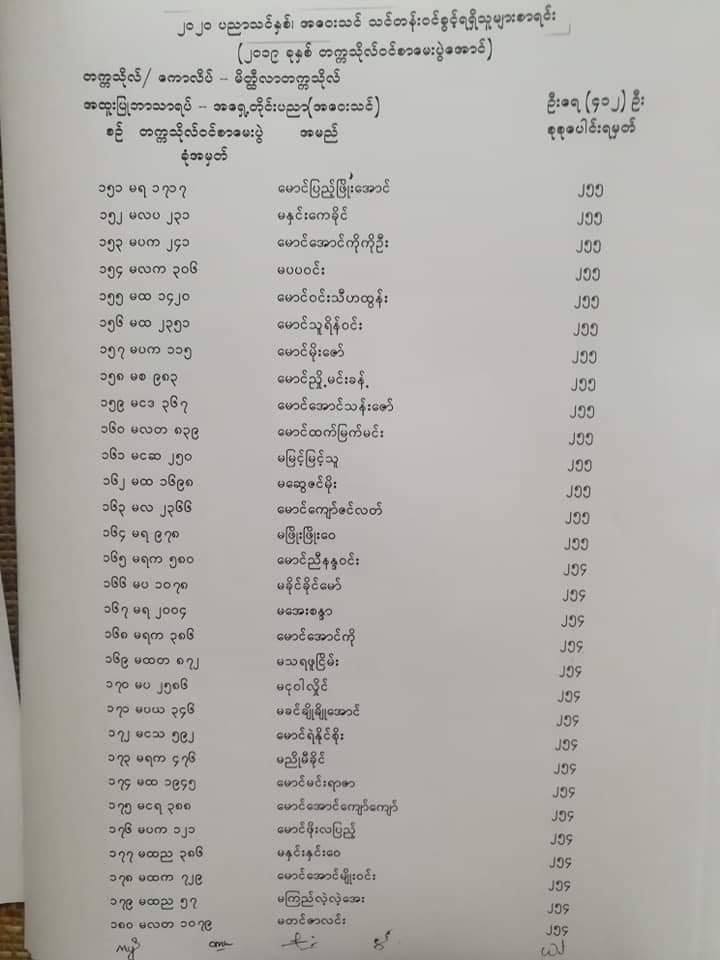 ၂၀၂၀ ပညာသင်နှစ်၊ အဝေးသင် သင်တန်းဝင်ခွင့်ရရှိသူများစာရင်း
(၂၀၁၉ ခုနှစ် တက္ကသိုလ်ဝင်စာမေးပွဲအောင်)
တက္ကသိုလ်/ ကောလိပ် – မိတ္ထီလာတက္ကသိုလ်
အထူးပြုဘာသာရပ် – အရှေ့တိုင်းပညာ(အဝေးသင်) ဦးရေ (၄၁၂) ဦး
စဉ် တက္ကသိုလ်ဝင်စာမေးပွဲ အမည် စုစုပေါင်းရမှတ်
ခုံအမှတ်
၁၅၁ မရ ၁၇၁၇ မောင်ပြည့်ဖြိုးအောင် ၂၅၅
၁၅၂ မလပ ၂၃၁ မနှင်းကေခိုင် ၂၅၅
၁၅၃ မပက ၂၄၁ မောင်အောင်ကိုကိုဦး ၂၅၅
၁၅၄ မလက ၃၀၆ မပပဝင်း ၂၅၅
၁၅၅ မထ ၁၄၂၀ မောင်ဝင်းသီဟထွန်း ၂၅၅
၁၅၆ မထ ၂၃၅၁ မောင်သူရိန်ဝင်း ၂၅၅
၁၅၇ မပက ၁၁၅ မောင်မိုးဇော် ၂၅၅
၁၅၈ မစ ၉၈၃ မောင်ညို့မင်းခန့် ၂၅၅
၁၅၉ မငဒ ၃၆၇ မောင်အောင်သန်းဇော် ၂၅၅
၁၆၀ မလတ ၈၃၉ မောင်ထက်မြက်မင်း ၂၅၅
၁၆၁ မငဆ ၂၅၀ မမြင့်မြင့်သူ ၂၅၅
၁၆၂ မထ ၁၆၉၈ မဆွေဇင်မိုး ၂၅၅
၁၆၃ မလ ၂၃၆၆ မောင်ကျော်ဇင်လတ် ၂၅၅
၁၆၄ မရ ၉၇၈ မဖြိုးဖြိုးဝေ ၂၅၅
၁၆၅ မရက ၅၈၀ မောင်ညီနန္ဒဝင်း ၂၅၄
၁၆၆ မပ ၁၀၇၈ မခိုင်ခိုင်မော် ၂၅၄
၁၆၇ မရ ၂၀၀၄ မအေးစန္ဒာ ၂၅၄
၁၆၈ မရက ၃၈၆ မောင်အောင်ကို ၂၅၄
၁၆၉ မထတ ၈၇၂ မသရဖူငြိမ်း ၂၅၄
၁၇၀ မပ ၂၅၈၆ မငုဝါလှိုင် ၂၅၄
၁၇၁ မပယ ၃၄၆ မခင်ချိုချိုအောင် ၂၅၄
၁၇၂ မငသ ၅၉၂ မောင်ရဲနိုင်စိုး ၂၅၄
၁၇၃ မရက ၄၇၆ မညိုမီခိုင် ၂၅၄
၁၇၄ မထ ၁၉၄၅ မောင်မင်းရာဇာ ၂၅၄
၁၇၅ မငရ ၃၈၈ မောင်အောင်ကျော်ကျော် ၂၅၄
၁၇၆ မပက ၁၂၁ မောင်ဖိုးလပြည့် ၂၅၄
၁၇၇ မထည ၃၈၆ မနှင်းနှင်းဝေ ၂၅၄
၁၇၈ မထက ၇၂၉ မောင်အောင်မျိုးဝင်း ၂၅၄
၁၇၉ မထည ၅၇ မကြည်လဲ့လဲ့အေး ၂၅၄
၁၈၀ မလတ ၁၀၇၉ မတင်ဇာလင်း ၂၅၄